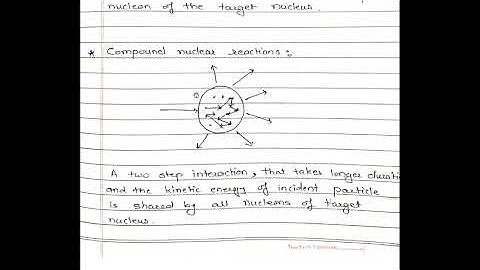 nucleon of the target nucleus.
* Compound nuclear reactions:
A two step interaction, that takes longer duration
and the kinetic energy of incident particle
is shared by all nucleons of target
nucleus.